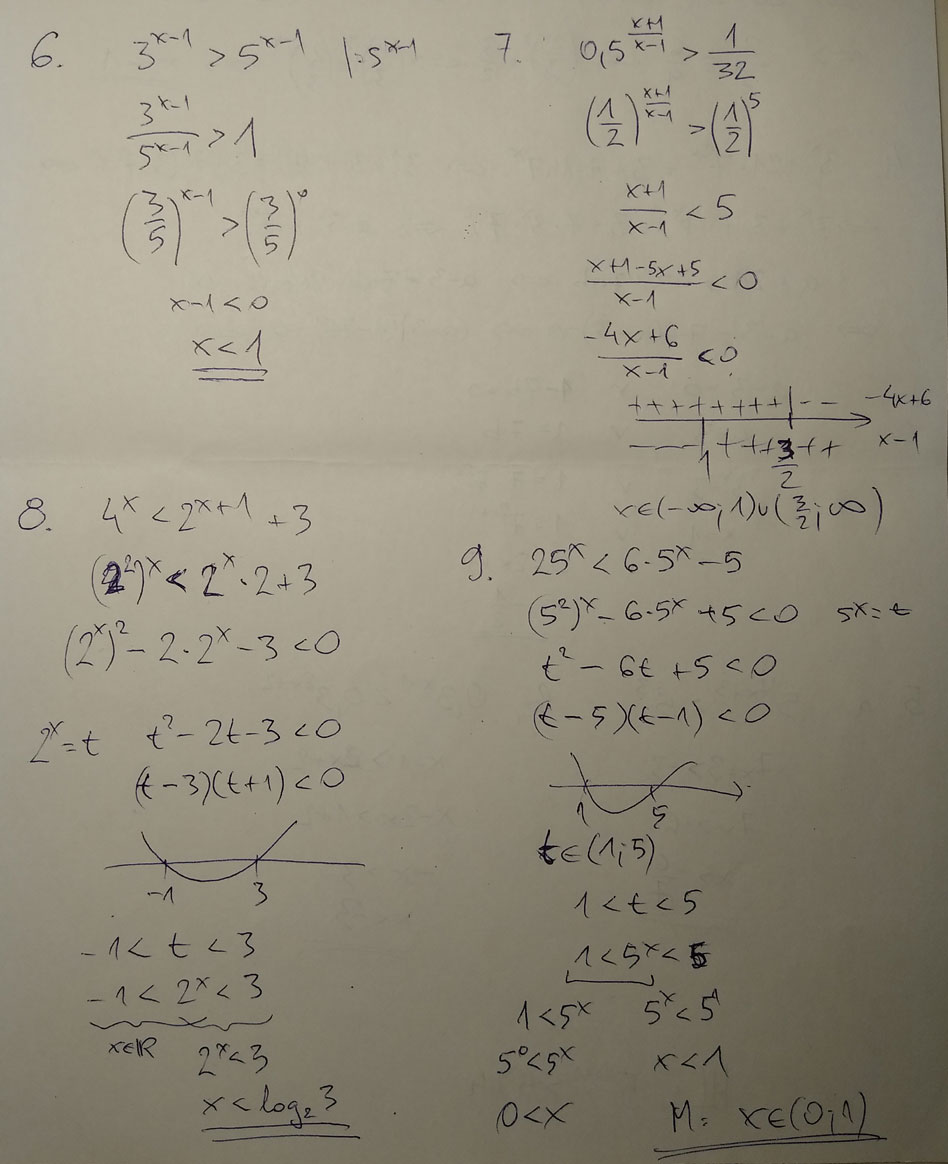 6. 3^(x-1) > 5^(x-1) |:5^(x-1)
3^(x-1)/5^(x-1) > 1
(3/5)^(x-1) > (3/5)^0
x-1 < 0
x < 1
7. 0,5^((x+1)/(x-1)) > 1/32
(1/2)^((x+1)/(x-1)) > (1/2)^5
(x+1)/(x-1) < 5
(x+1-5x+5)/(x-1) < 0
(-4x+6)/(x-1) < 0
++++++++|-- -4x+6
----|+++++ x-1
1 3/2
x∈(-∞;1)∪(3/2;∞)
8. 4^x < 2^(x+1) + 3
(2²)^x < 2^x·2+3
(2^x)² - 2·2^x - 3 < 0
2^x = t t² - 2t - 3 < 0
(t-3)(t+1) < 0
-1 3
-1 < t < 3
-1 < 2^x < 3
x∈R 2^x < 3
x < log₂3
9. 25^x < 6·5^x - 5
(5²)^x - 6·5^x + 5 < 0 5^x = t
t² - 6t + 5 < 0
(t-5)(t-1) < 0
1 5
t∈(1;5)
1 < t < 5
1 < 5^x < 5
1 < 5^x 5^x < 5^1
5^0 < 5^x x < 1
0 < x M: x∈(0;1)